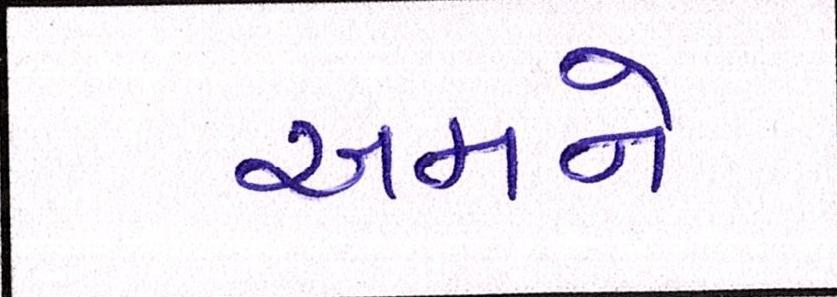 અમને